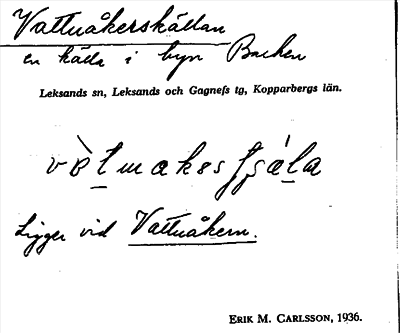 Vattuåkerskällan
en källa i byn Backen
Leksands sn, Leksands och Gagnefs tg, Kopparbergs län.
Ligger vid Vattuåkern.
ERIK M. CARLSSON, 1936.